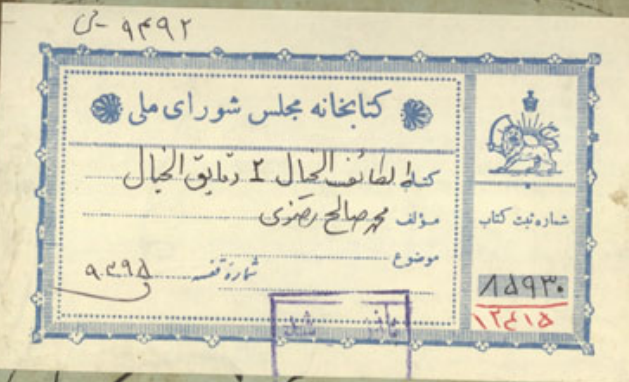 ۹۴۹۲ - خ
کتابخانه مجلس شورای ملی
کتاب لطائف الخیال ۲ دقایق الخیال
مؤلف محمد صالح رضوی
موضوع
شماره قفسه ۹۰۳۹۵
شماره ثبت کتاب
۸۵۹۳۰
۱۲۴۱۵